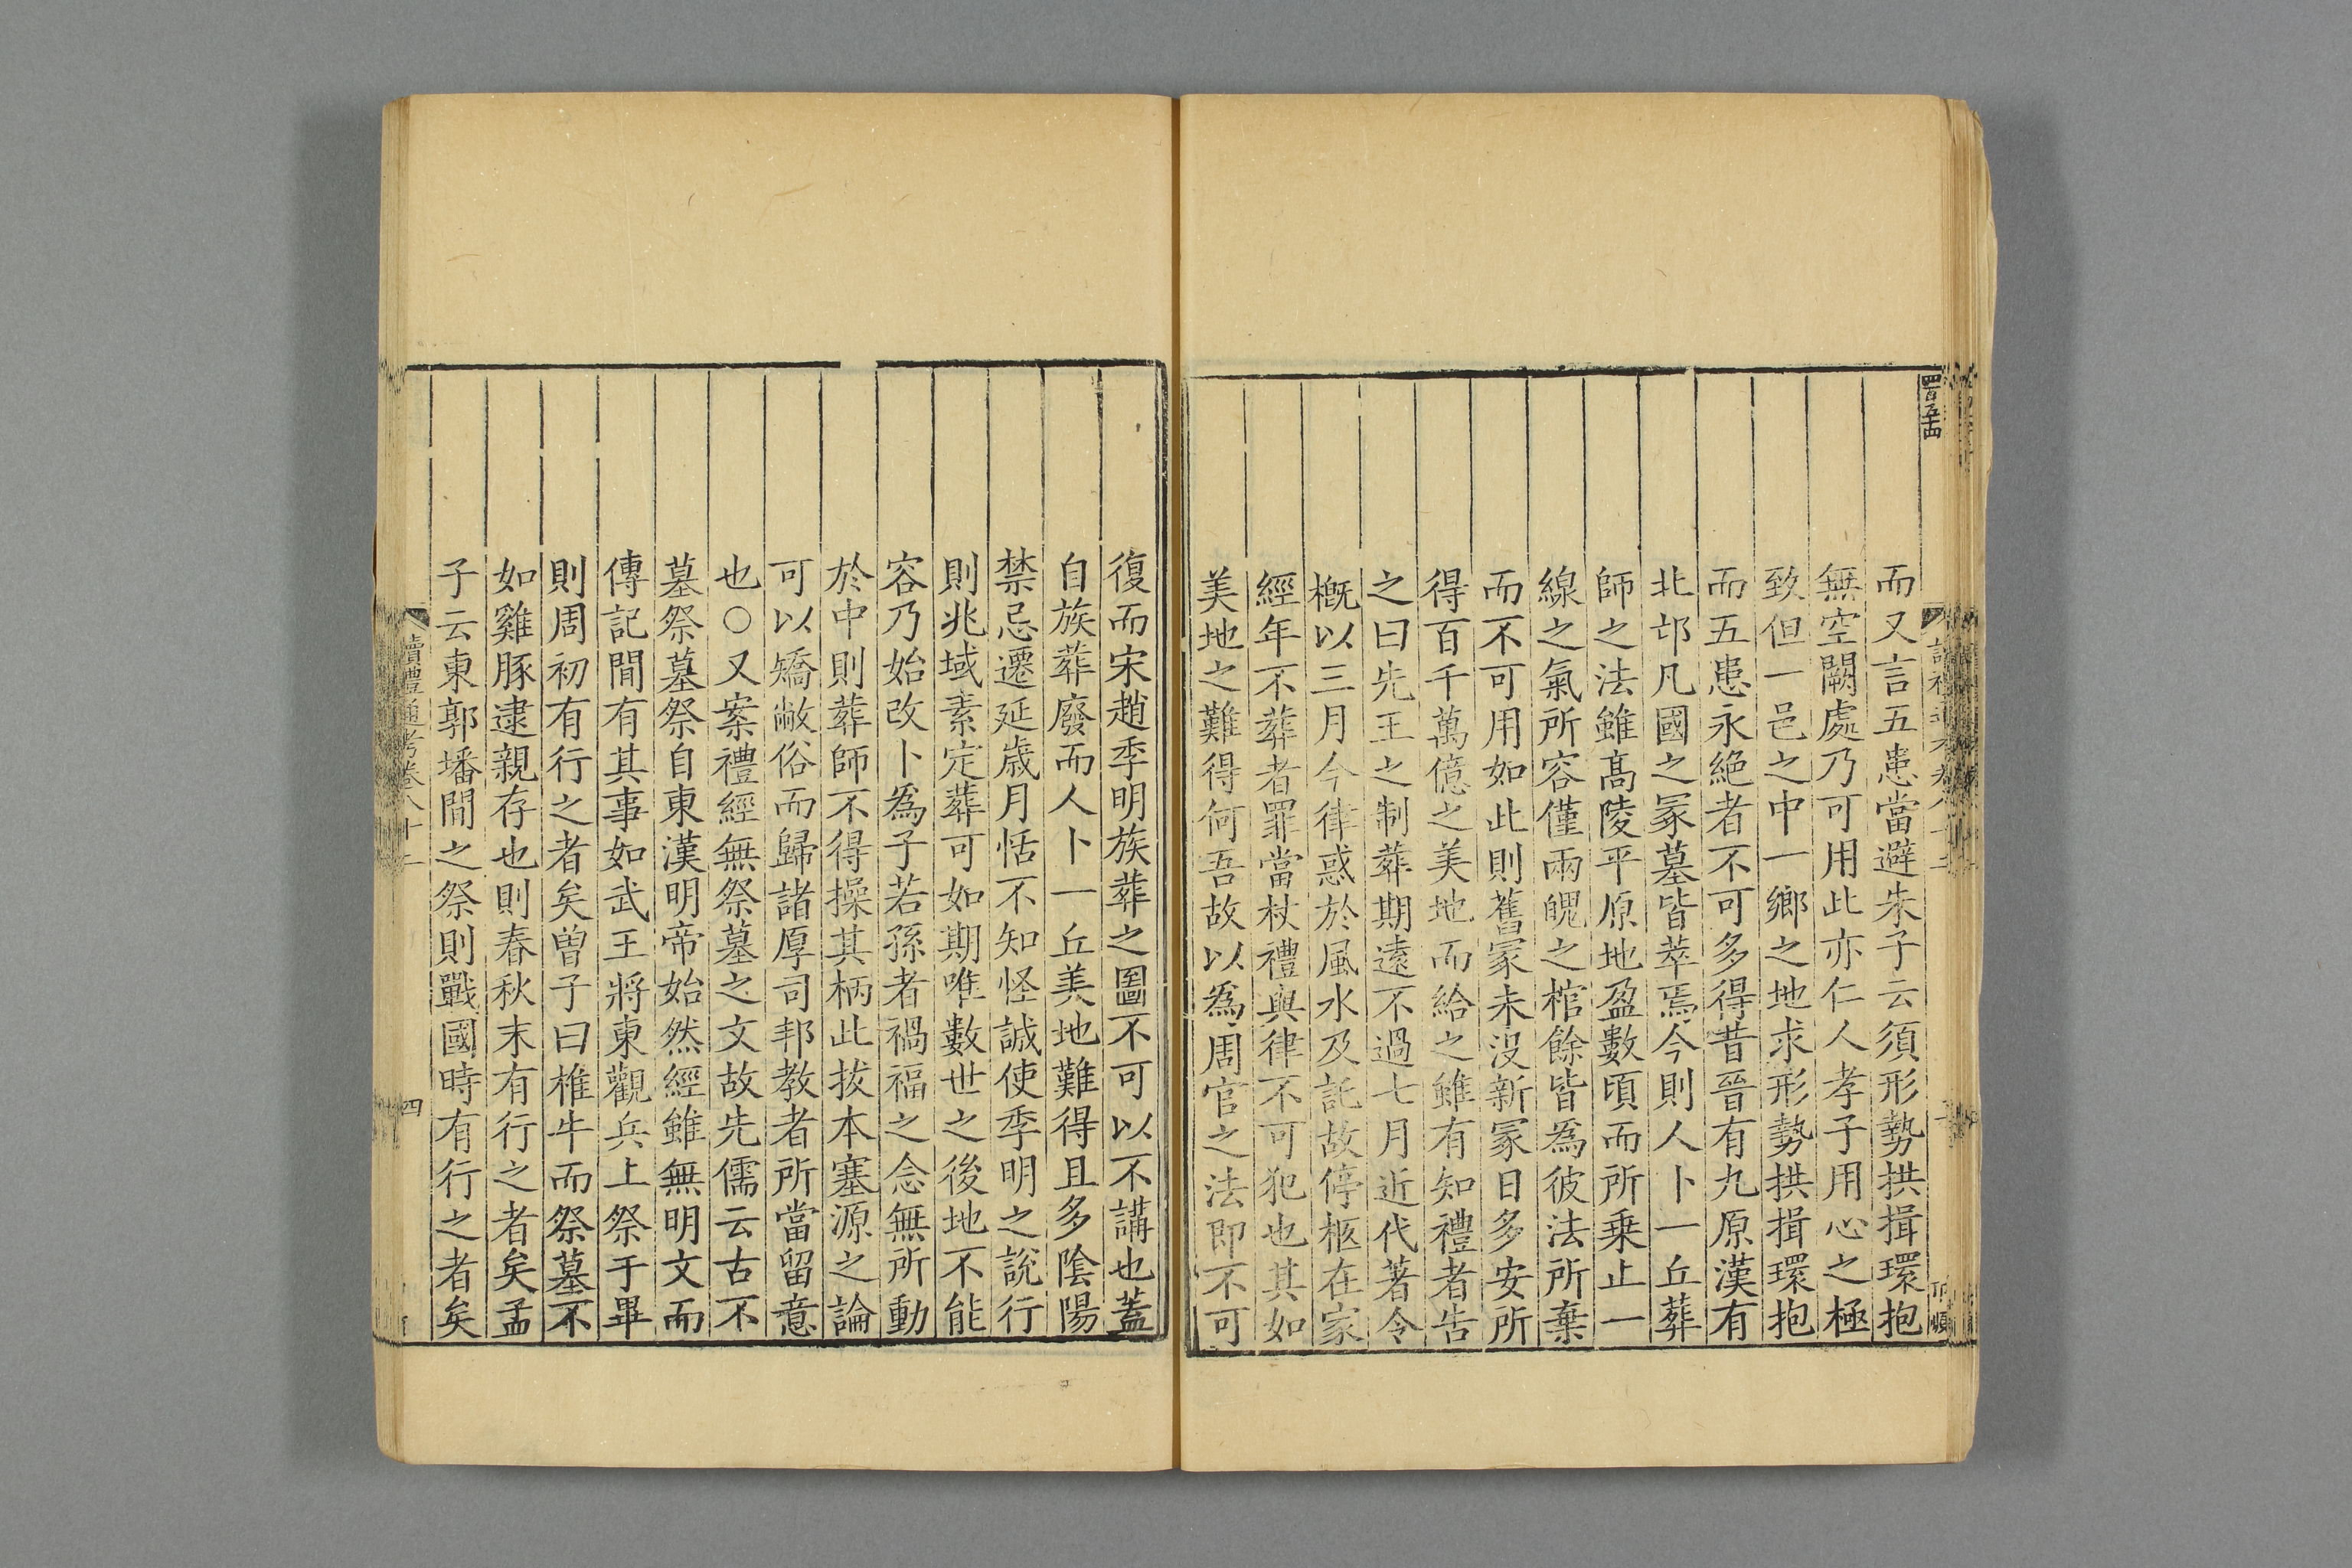 而又言五患當避朱子云須形勢拱揖環抱
無空闕處乃可用此亦仁人孝子用心之極
致但一邑之中一鄉之地求形勢拱揖環抱
而五患永絶者不可多得昔晉有九原漢有
北邙凡國之冢墓皆萃焉今則人卜一丘葬
師之法雖髙陵平原地盈數頃而所乗止一
線之氣所容僅兩魄之棺餘皆爲彼法所棄
而不可用如此則舊冢未沒新冢日多安所
得百千萬億之美地而給之雖有知禮者告
之曰先王之制葬期遠不過七月近代著令
概以三月今律惑於風水及託故停柩在家
經年不葬者罪當杖禮與律不可犯也其如
美地之難得何吾故以爲周官之法即不可
復而宋趙季明族葬之圖不可以不講也蓋
自族葬廢而人卜一丘美地難得且多陰陽
禁忌遷延歳月恬不知怪誠使季明之說行
則兆域素定葬可如期唯數世之後地不能
容乃始改卜爲子若孫者禍福之念無所動
於中則葬師不得操其柄此拔本塞源之論
可以矯敝俗而歸諸厚司邦教者所當留意
也○又案禮經無祭墓之文故先儒云古不
墓祭墓祭自東漢明帝始然經雖無明文而
傳記間有其事如武王將東觀兵上祭于畢
則周初有行之者矣曽子曰椎牛而祭墓不
如雞豚逮親存也則春秋末有行之者矣孟
子云東郭墦間之祭則戰國時有行之者矣
讀禮通考卷八十二
四